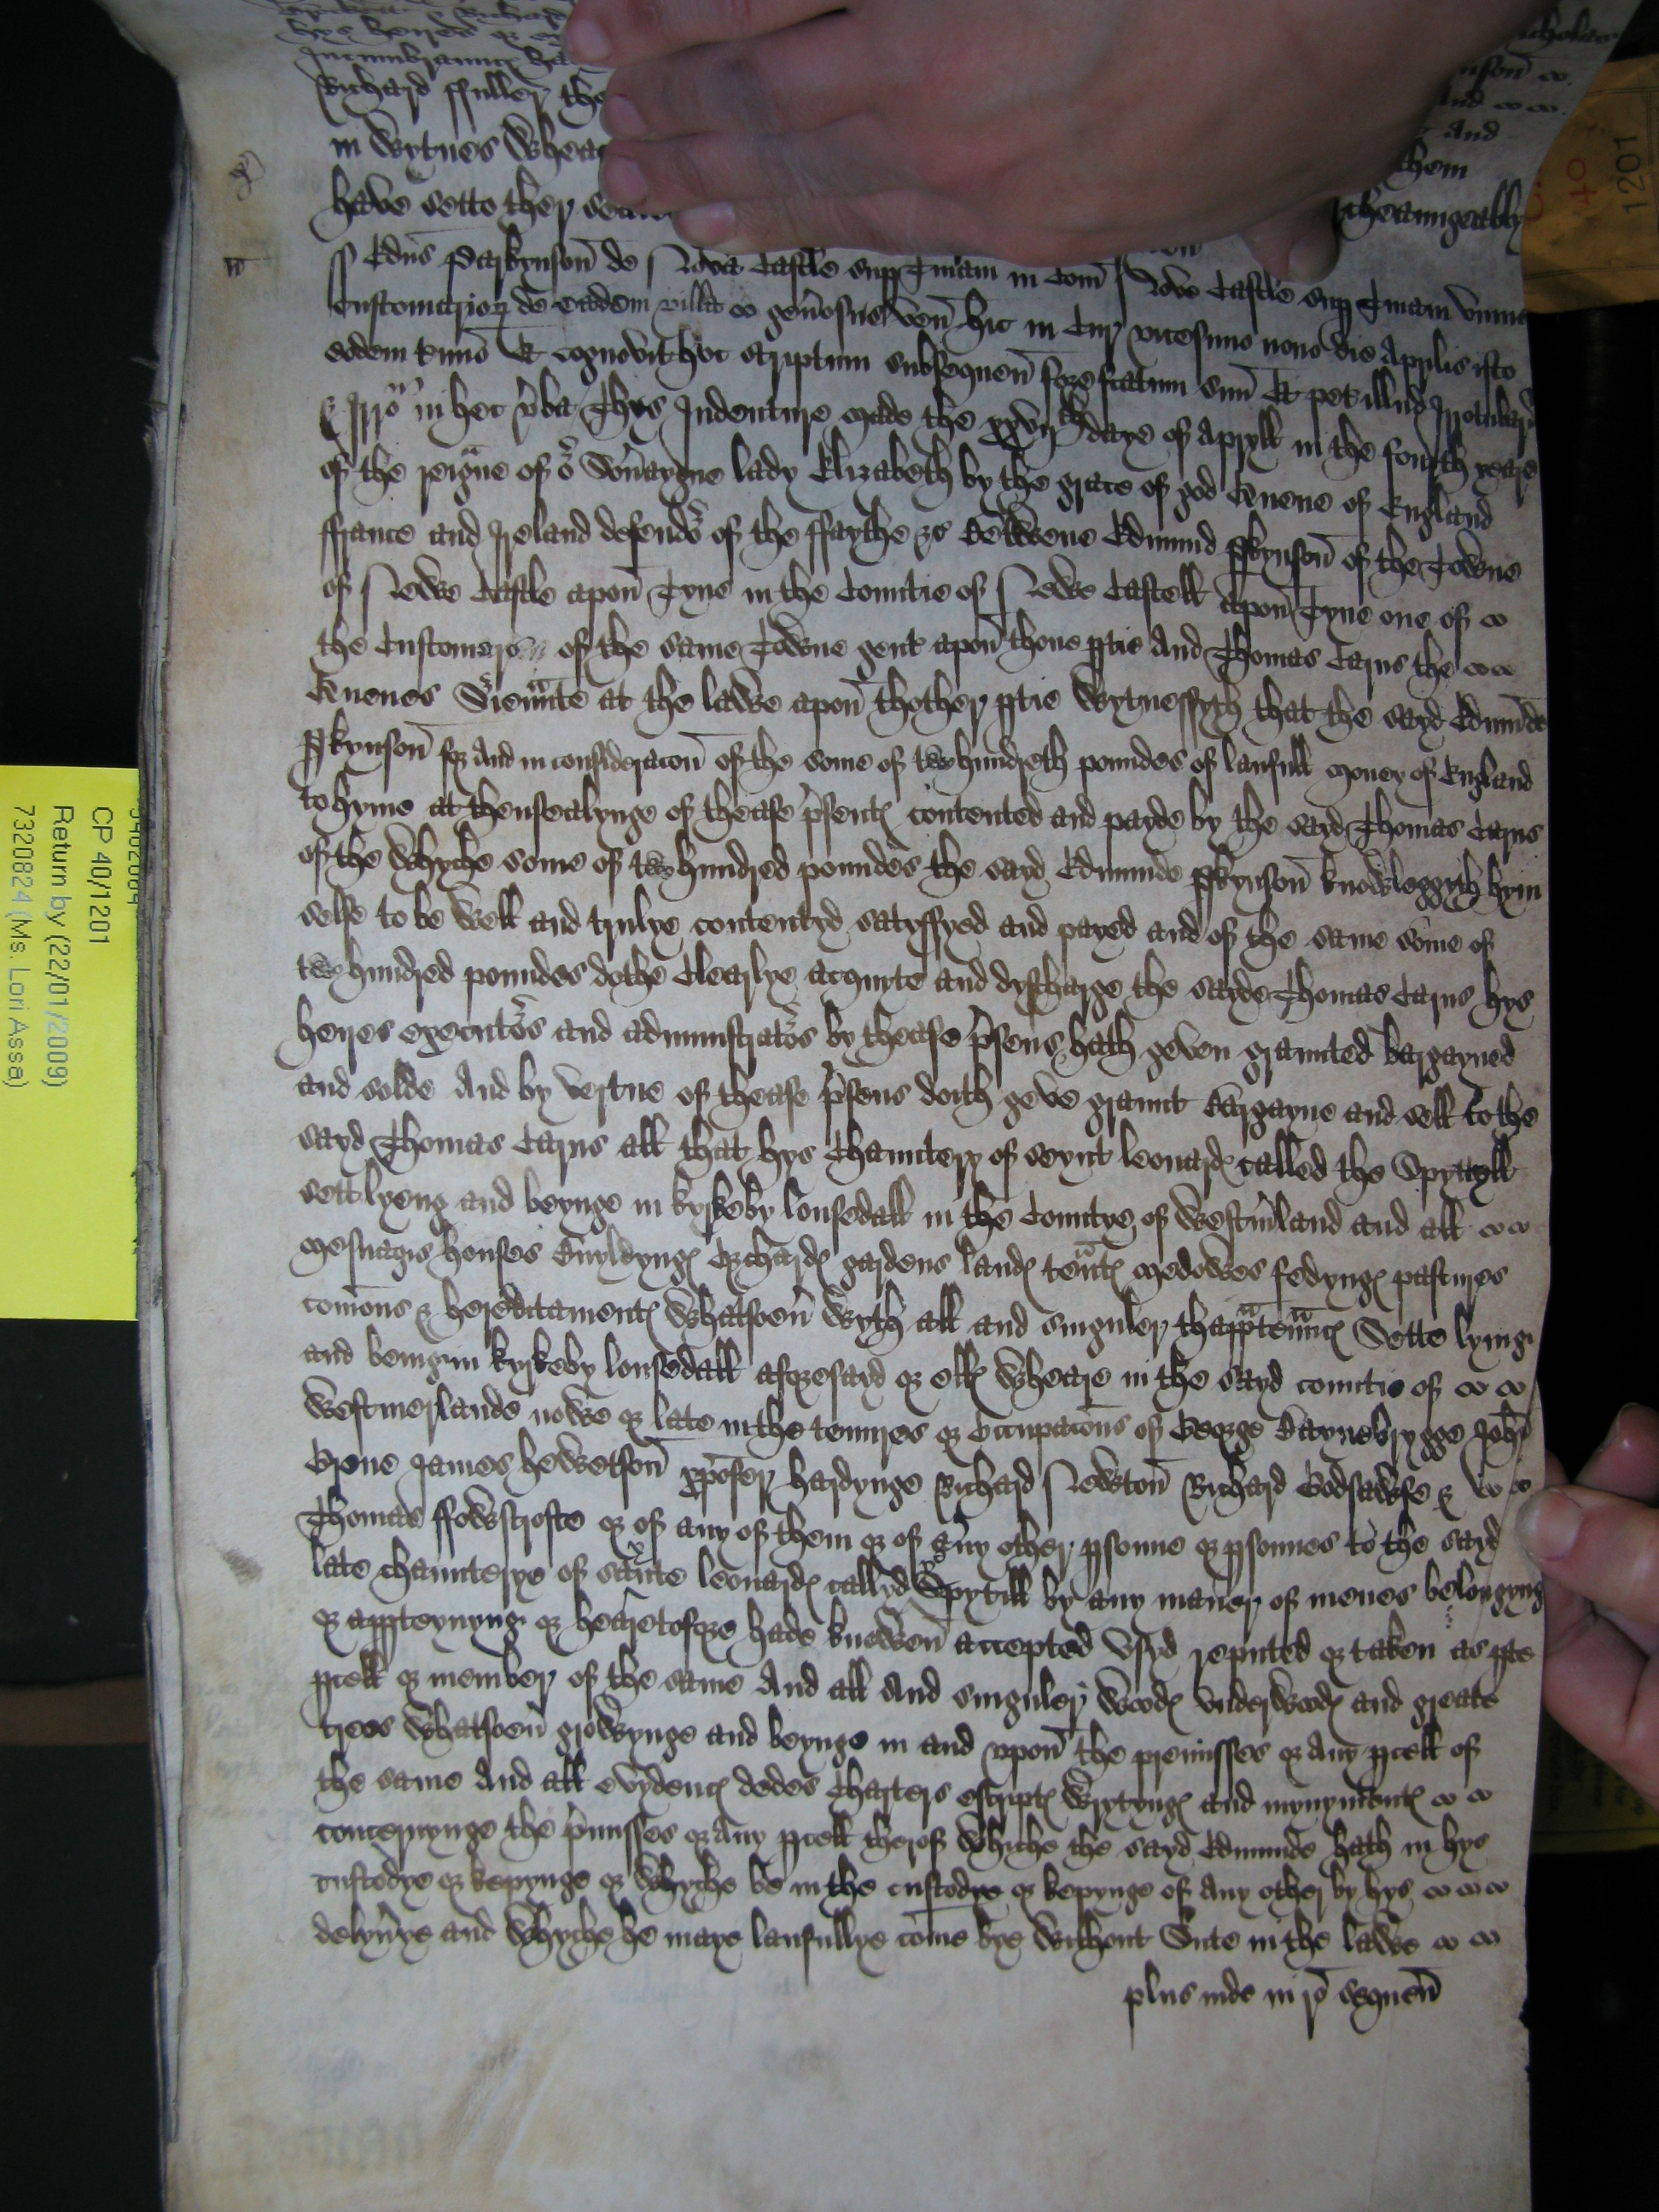 hys heires or
Richard ffuller the
in wytnes wheare
have sette ther
Nicholas
And
them
cheaungeably
ss Edus Parkynson de Nova Castle supp Tinam in Com Nove Castle supp Tinam unus
Customarior de eadem villa generosus ven hic in Cur vicesimo nono die Aprilis isto
eodem tmino Et cognovit hoc scriptum subsequen fore factum suu Et pet illud Irrotulari
& Irro in hec vba Thys Indenture made the xxviijth daye of Apryll in the fourth yeare
of the reigne of or Soveraygne lady Elizabeth by the grace of god Quene of England
ffrance and Ireland defendor of the ffaythe &c Betwene Edmund pkynson of the Towne
of Newe Castle apon Tyne in the Countie of Newe Castell apon Tyne one of
the Customers of the same Towne gent apon thone ptie And Thomas Carus the
Quenes Srieunte at the lawe apon thother ptie Wytnessyth that the sayd Edmude
pkynson for And in consideracon of the some of two hundreth poundes of laufull money of England
to hyme at thensealynge of thease psentes contented and payde by the sayd Thomas Carus
of the whyche some of two hundred poundes the sayd Edmunde pkynson knowleggyth hym
selfe to be well and trulye contentyd satysfyed and payed and of the same some of
two hundred poundes dothe clearlye acquyte and dyscharge the sayde Thomas Carus hys
heyres executors and administrators by thease psens hath geven graunted bargayned
and solde And by vertue of thease psens doith geve graunt Bargayne and sell to the
sayd Thomas Carus all that hys Chauntery of seynt leonardes called the Spyttyll
sett lyeng and beynge in kyrkeby lonsedall in the Countye of Westmland and all
mesuagis houses Buyldynges Orchardes gardens landes tentes medowes fedynges pastures
comons & hereditamentes whatsoev wyth all and singuler thapptennces Sette lying
and being in kyrkeby lonsedall aforesayd or elles wheare in the sayd countie of
Westmerlande nowe or late in the tenures or Occupacons of George Baynebrygge John
James hewetson xpofer hardynge Richard Newton Richard Godsawfe &
Thomas ffowscrofte or of any of them or of any other psonne or psonnes to the sayd
late chaunterye of saynte leonardes callyd ye Spytill by any maner of menes belongyng
or appteynyng or heartofore hade knowen accepted usyd reputed or taken as pte
pcell or member of the same And all And singuler woodes underwoodes and greate
trees whatsoev growynge and beynge in and upon the premisses or any pcell of
the same And all evydences dedes Charters escriptes wrytynges and mynymentes
concernynge the pmisses or any pcell therof whiche the sayd Edmunde hath in hys
custodye or kepynge or whyche be in the custodye or kepynge of any other by hys
delyvye and whyche he maye laufullye come bye without Sute in the lawe
plus inde in ro sequen
CP 40/1201
Return by (22/01/2009)
7320824 (Ms. Lori Assa)
40
1201